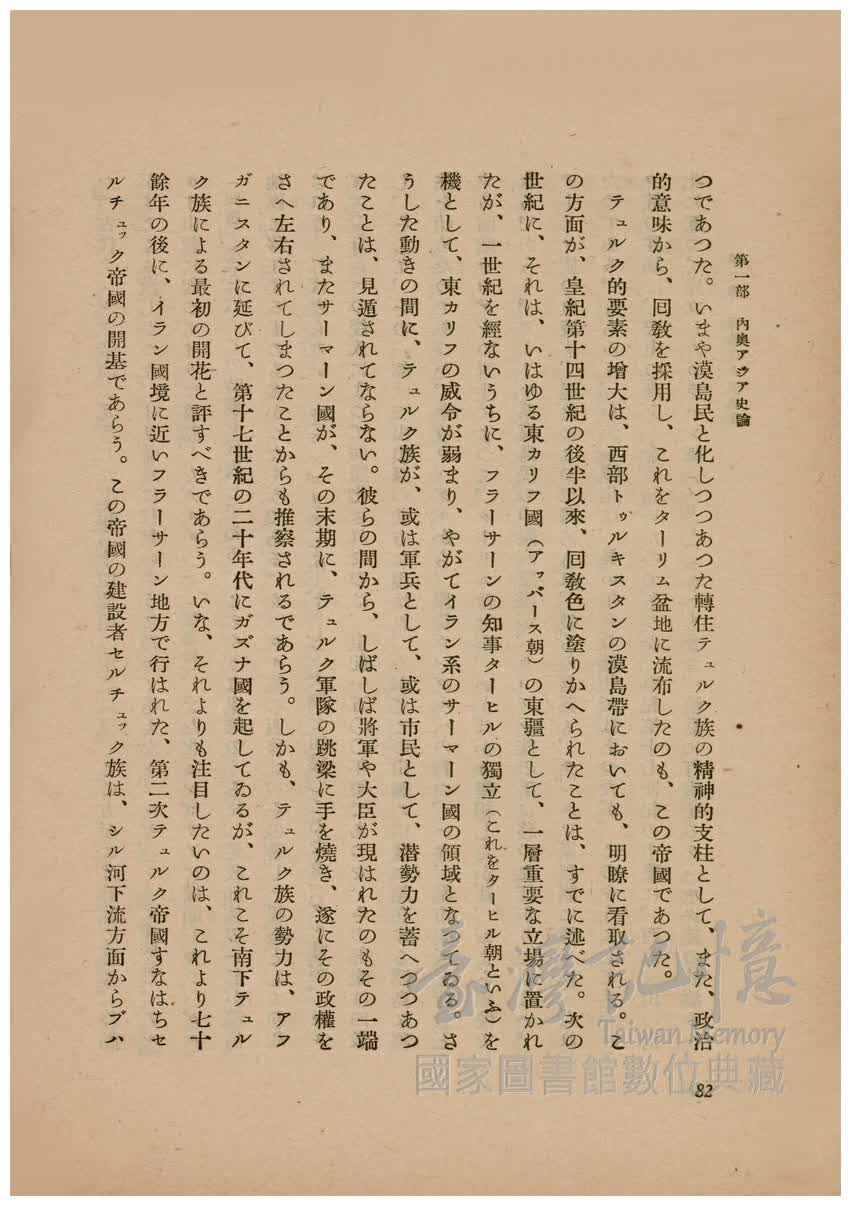 第一部 內奧アジア史論
つであつた。いまや漠島民と化しつつあつた轉住テュルク族の精神的支柱として、また、政治
的意味から、囘敎を採用し、これをターリム盆地に流布したのも、この帝國であつた。
テュルク的要素の增大は、西部トゥルキスタンの漠島帶においても、明瞭に看取される。こ
の方面が、皇紀第十四世紀の後半以來、囘敎色に塗りかへられたことは、すでに述べた。次の
世紀に、それは、いはゆる東カリフ國（アッバース朝）の東疆として、一層重要な立場に置かれ
たが、一世紀を經ないうちに、フラーサーンの知事ターヒルの獨立（これをターヒル朝といふ）を
機として、東カリフの威令が弱まり、やがてイラン系のサーマーン國の領域となつてゐる。さ
うした動きの間に、テュルク族が、或は軍兵として、或は市民として、潜勢力を蓄へつつあつ
たことは、見遁されてならない。彼らの間から、しばしば將軍や大臣が現はれたのもその一端
であり、またサーマーン國が、その末期に、テュルク軍隊の跳梁に手を燒き、遂にその政權を
さへ左右されてしまつたことからも推察されるであらう。しかも、テュルク族の勢力は、アフ
ガニスタンに延びて、第十七世紀の二十年代にガズナ國を起してゐるが、これこそ南下テュル
ク族による最初の開花と評すべきであらう。いな、それよりも注目したいのは、これより七十
餘年の後に、イラン國境に近いフラーサーン地方で行はれた、第二次テュルク帝國すなはちセ
ルチュック帝國の開基であらう。この帝國の建設者セルチュック族は、シル河下流方面からブハ
82
臺灣記憶
Taiwan Memory
國家圖書館數位典藏